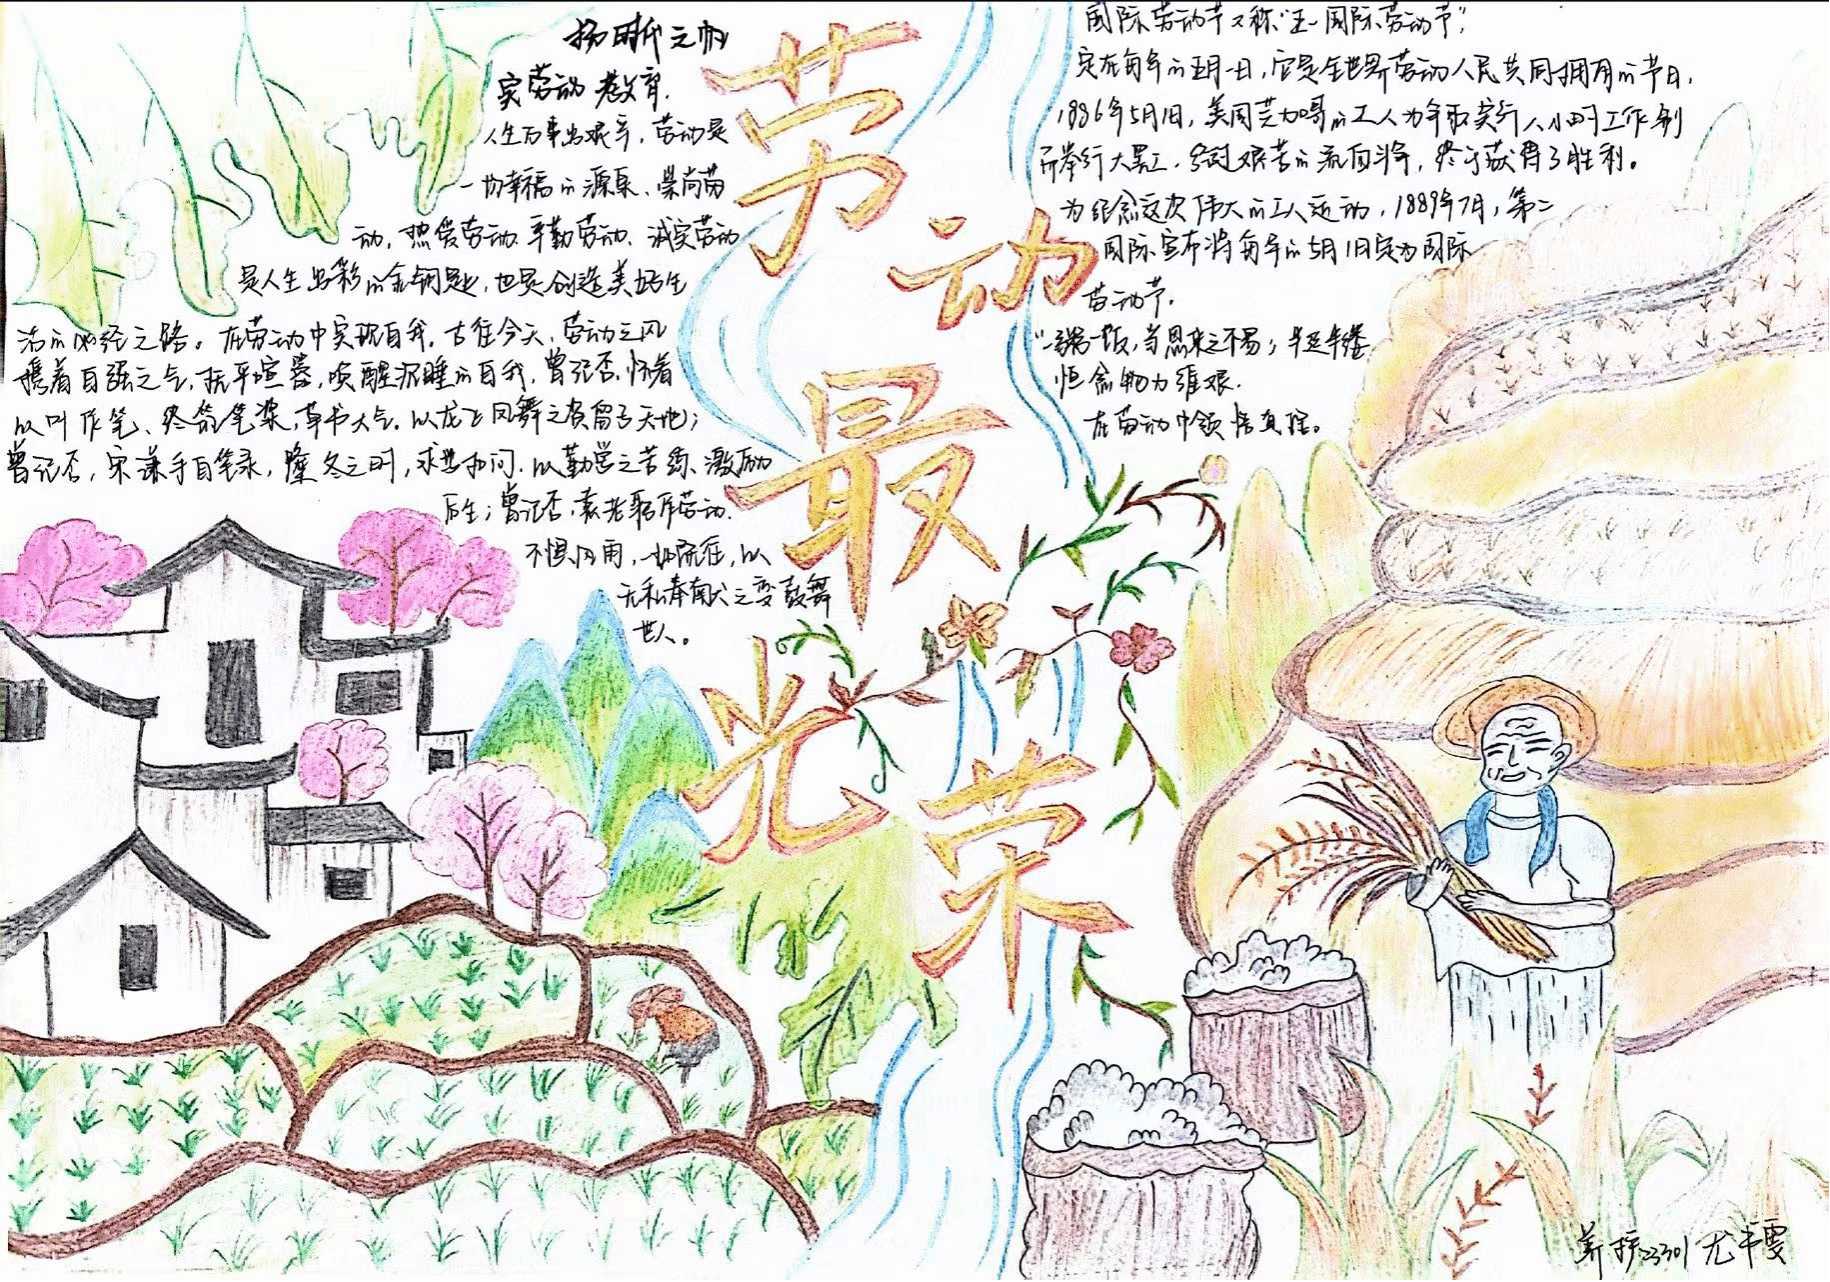 扬时代之帆
实劳动教育.
人生万事出艰辛,劳动是
一切幸福的源泉、崇尚劳
动,热爱劳动、辛勤劳动、诚实劳动
是人生出彩的金钥匙,也是创造美好生
活的必经之路。在劳动中实现自我,古往今天,劳动之风
携着自强之气,抚平喧嚣,唤醒沉睡的自我,曾记否,怀着
以叶作笔、终能笔染,草书大气,以龙飞凤舞之资留了天地;
曾记否,宋濂手自笔录,隆冬之时,求学叩问,以勤学之苦练、激励
后生;曾记否,袁老躬身劳动.
不惧风雨,一如既往,以
无私奉献之变鼓舞
世人。
劳动最光荣
国际劳动节又称“五一国际劳动节”,
定在每年的五月一日,它是全世界劳动人民共同拥有的节日,
1886年5月1日,美国芝加哥的工人为争取实行八小时工作制
而举行大罢工,经过艰苦的流血斗争,终于获得了胜利。
为纪念这次伟大的工人运动,1889年7月,第二
国际宣布将每年的5月1日定为国际
劳动节.
“一粥一饭,当思来之不易;半丝半缕
恒念物力维艰.
在劳动中领悟真理。
美护23301 尤千雯